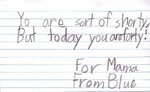 Yo, are sort of shorty,
But today you areforty!
For Mama
From Blue